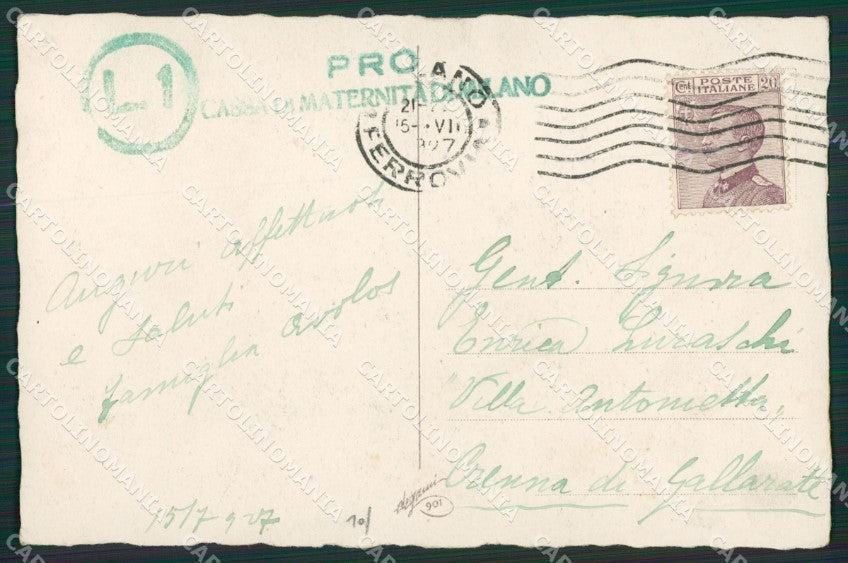 L 1
PRO
CASSA DI MATERNITÀ DI MILANO
MILANO
21-
15- VII
1927
FERROVIA
Cent. POSTE ITALIANE 20
Auguri affettuosi
e saluti
famiglia Avolos
15/7 927
Gent. Signora
Enrica Luraschi
Villa Antonietta,
Crenna di Gallarate
10/
Degami
901
CARTOLINOMANIA